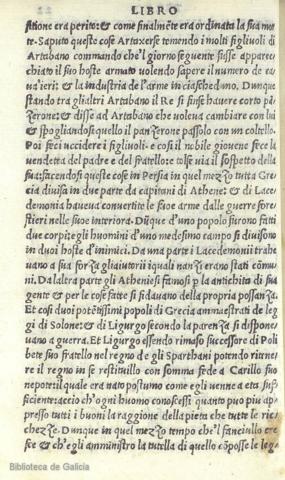 LIBRO
sitione era perito: & come finalmēte era ordinata la sua mor
te. Saputo queste cose Artaxerse temendo i molti figliuoli di
Artabano commando che'l giorno seguente fusse apparec
chiato il suo hoste armato volendo sapere il numero de ca
va'ierit & la industria de l'arme in ciaschedano. Dunque
stando tra gli altri Artabano il Re si finse hauere corto pā
zerone: & disse ad Artabano che voleua cambiare con lui
& spogliandosi quello il panzerone passolo con un coltello.
Poi feci uccidere i figliuoli: e cosi il nobile giovene fece la
vendetta del padre e del fratello: e tolse via il sospetto della
sua: facendosi queste cose in Persia in quel mezzo tutta Gre
cia divisa in due parte da capitani di Athene: & di Lace
demonia haueva convertite le suoe arme dalle guerre fore
stieri nelle suoe interiora. Dūque d'uno popolo furono fatti
due corpi: e gli huomini d'uno medesimo campo si divisono
in duoi hoste d'inimici. Da una parte i Lacedemonii trahe
uano a sua forza gli aiutorii i quali nanzi erano stati cōmu
ni. Da l'altra parte gli Atheniesi famosi p la antichita di sua
gente & per le cose fatte si fidavano della propria possanza.
Et cosi duoi potētissimi popoli di Grecia ammaestrati de leg
gi di Solone: & di Ligurgo secondo la parenza si dispone
uano a guerra. Et Ligurgo essendo rimaso successore di Poli
bete suo fratello nel regno de gli Sparthani potendo ritine
re il regno in se restituillo con somma fede a Carillo suo
nepote: il quale era nato postumo come egli uenne a eta suf
ficiente: accio ch'ogni huomo conoscessi quanto puo piu ap
presso tutti i buoni la raggione della pieta che tutte le ric
chezze. Dunque in quel mezzo tempo che'l fanciullo cre
sce & ch'egli amministro la tutella di quello cōposse le leg
Biblioteca de Galicia